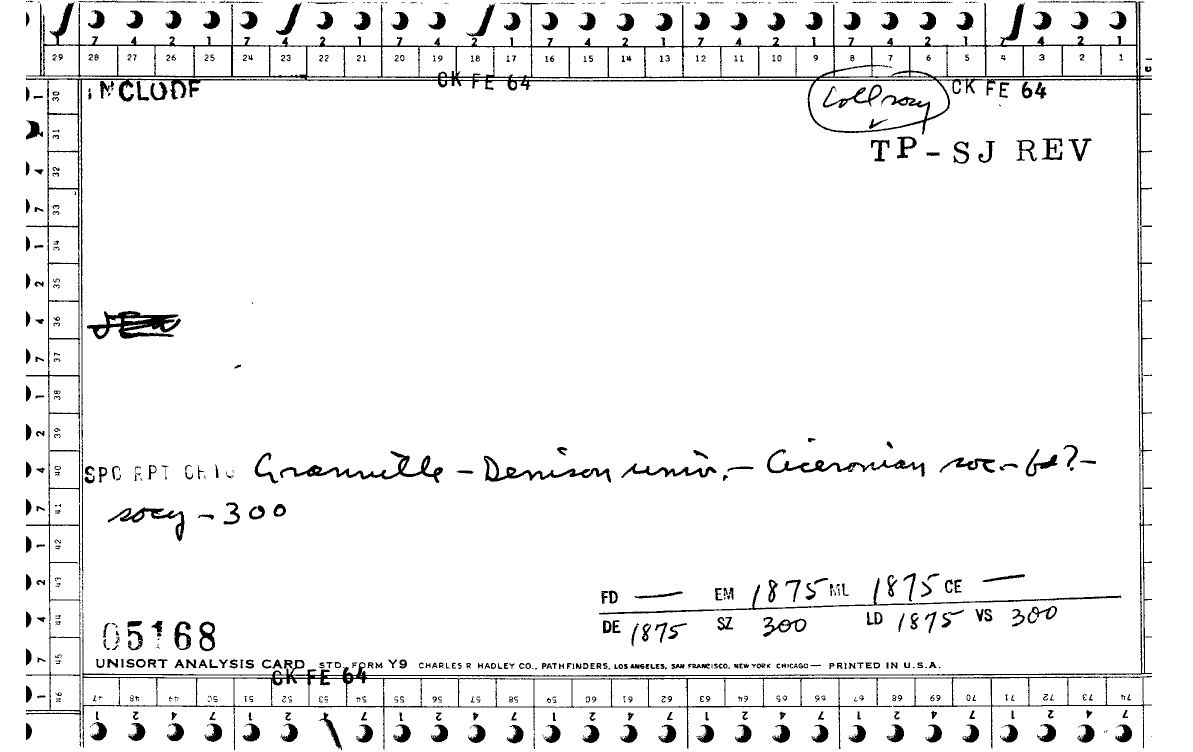 7 4 2 1 7 4 2 1 7 4 2 1 7 4 2 1 7 4 2 1 7 4 2 1 7 4 2 1
29 28 27 26 25 24 23 22 21 20 19 18 17 16 15 14 13 12 11 10 9 8 7 6 5 4 3 2 1
INCLUDE CK FE 64 Coll socy CK FE 64
TP-SJ REV
SPC RPT OHIO Granville - Denison univ. - Ciceronian soc. - fd? -
socy - 300
FD — EM 1875 ML 1875 CE —
DE 1875 SZ 300 LD 1875 VS 300
05168
UNISORT ANALYSIS CARD STD. FORM Y9 CHARLES R HADLEY CO., PATHFINDERS, LOS ANGELES, SAN FRANCISCO, NEW YORK CHICAGO — PRINTED IN U.S.A.
CK FE 64
47 48 49 50 51 52 53 54 55 56 57 58 59 60 61 62 63 64 65 66 67 68 69 70 71 72 73 74
1 2 4 7 1 2 4 7 1 2 4 7 1 2 4 7 1 2 4 7 1 2 4 7 1 2 4 7